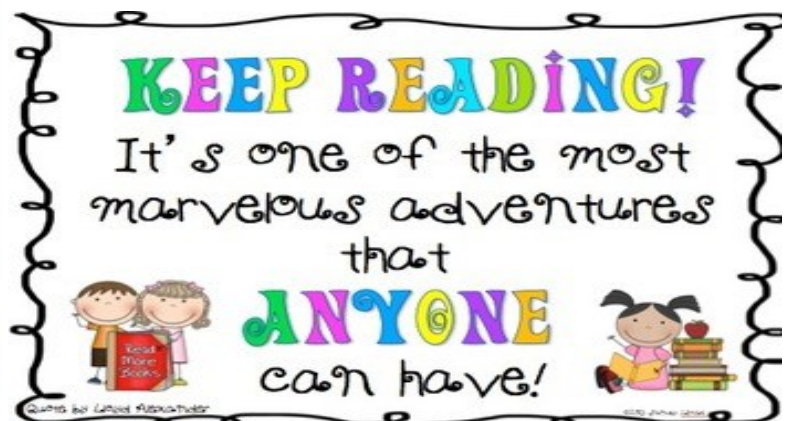 KEEP READING!
It's one of the most
marvelous adventures
that
ANYONE
can have!
Read
More
Books
Quote by Lloyd Alexander